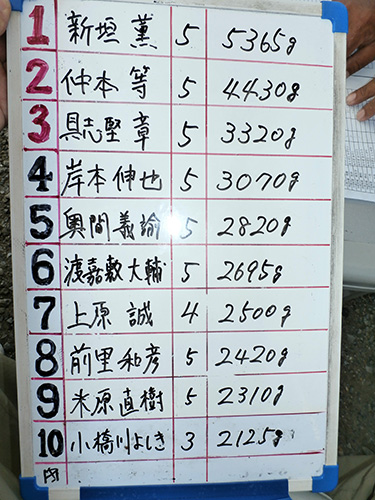 1 新垣 薫 5 5365g
2 仲本 等 5 4430g
3 具志堅 章 5 3320g
4 岸本伸也 5 3070g
5 奥間義諭 5 2820g
6 渡嘉敷大輔 5 2695g
7 上原 誠 4 2500g
8 前里和彦 5 2420g
9 米原直樹 5 2310g
10 小橋川よしき 3 2125g